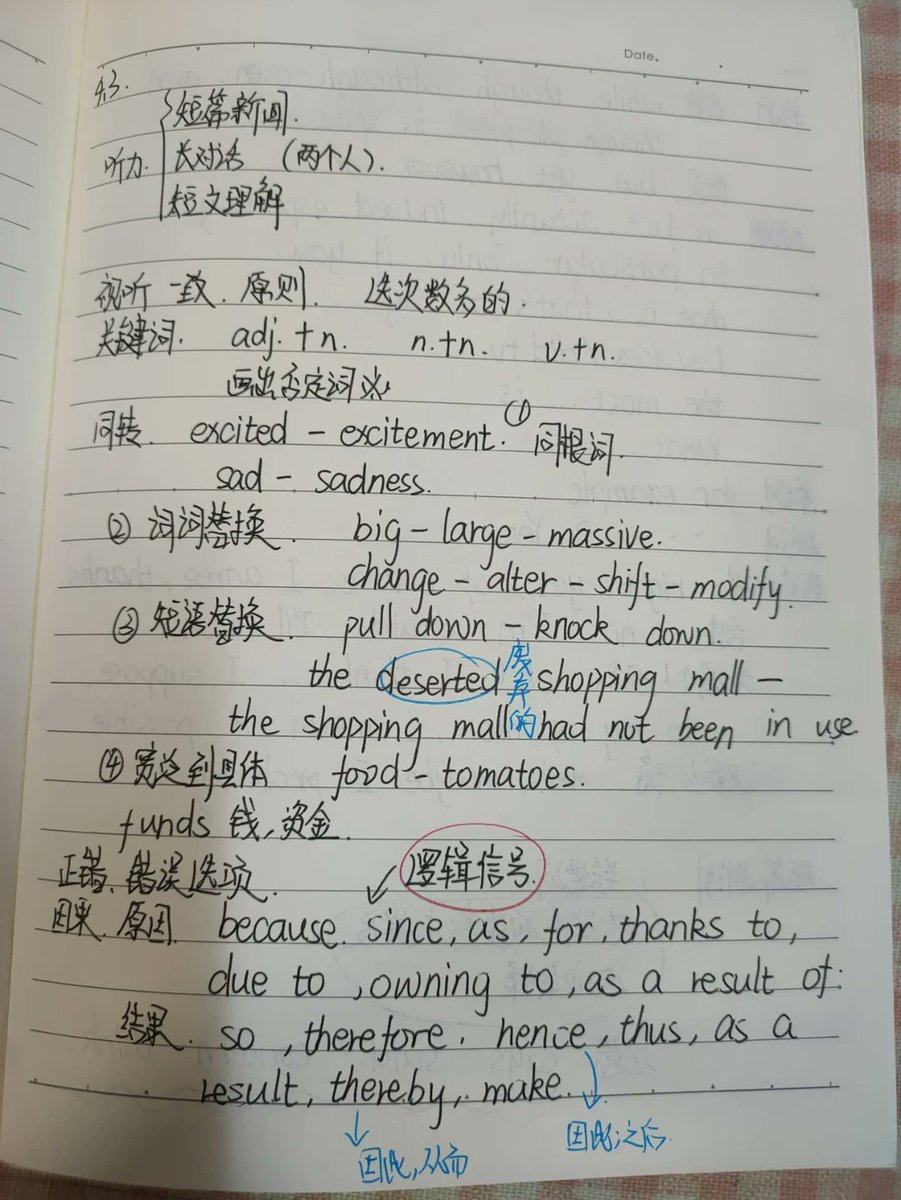 Date.
4.3.
短篇新闻.
听力. 长对话 (两个人).
短文理解
视听一致.原则. 选次数多的.
关键词. adj.+n. n.+n. v.+n.
画出否定词
同转. excited - excitement. ① 同根词.
sad - sadness.
② 词词替换. big - large - massive.
change - alter - shift - modify.
③ 短语替换. pull down - knock down.
the deserted 废弃的 shopping mall -
the shopping mall had not been in use
④ 宽泛到具体 food - tomatoes.
funds 钱,资金.
正错、错误选项. 逻辑信号.
因果. 原因. because. since, as, for, thanks to,
due to, owning to, as a result of:
结果. so, therefore. hence, thus, as a
result, thereby, make.
因此,从而
因此;之后.